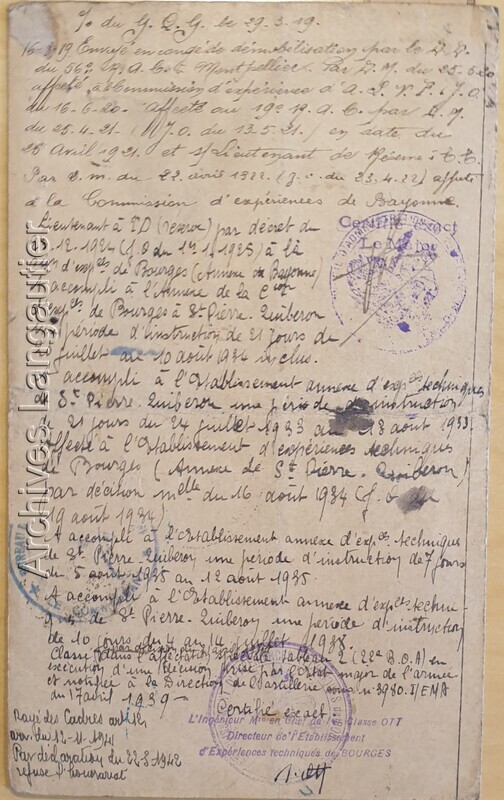 % du G. Q. G. le 29.3.19.
Envoyé en congé de démobilisation par le
du 56e R.A.C. à Montpellier. Par D.M. du 25-5-20
affecté à Commission d'expérience d'A.
du 16-6-20. Affecté au 19e R.A.C. par D.M.
du 25.4.21. (J.O. du 13.5.21.) en date du
25 Avril 1921. et s/Lieutenant de Réserve à T.T.
Par D.M. du 22 avril 1922. (J.O. du 23.4.22) affecté
à la Commission d'expériences de Bayonne.
Lieutenant à TD (réserve) par décret du
12.1924 (J.O du 1er 1.1925) à la
d'expces de Bourges (Annexe de Bayonne)
accompli à l'Annexe de la Cion
de Bourges à St Pierre-Quiberon
période d'instruction de 21 jours du
juillet au 10 août 1931 inclus.
A accompli à l'Etablissement annexe d'expces techniques
de St Pierre-Quiberon une période d'instruction
de 21 jours du 24 juillet 1933 au 13 août 1933
Affecté à l'Etablissement d'expériences techniques
de Bourges (Annexe de St Pierre-Quiberon)
par décision melle du 16 août 1934 (J.O. du
19 août 1934)
A accompli à l'Etablissement annexe d'expces techniques
de St Pierre-Quiberon une période d'instruction de 7 jours
du 5 août 1935 au 12 août 1935.
A accompli à l'Etablissement annexe d'expces techni-
ques de St Pierre-Quiberon une période d'instruction
de 10 jours du 4 au 14 juillet 1938.
Classé dans l'affectation spéciale tableau 2 (22e B.O.A) en
exécution d'une décision prise par l'Etat major de l'armée
et notifiée à la Direction de l'artillerie sous n° 3980 I/EMA
du 17 avril 1939 -
Certifié exact
L'Ingénieur Mre en Chef de 1ère Classe OTT
Directeur de l'Etablissement
d'Expériences techniques de BOURGES
Rayé des Cadres
du 12-11-1941
Par déclaration du 22-8-1942
refuse l'honorariat
Certifié exact
Le Maire
Archives Langautier